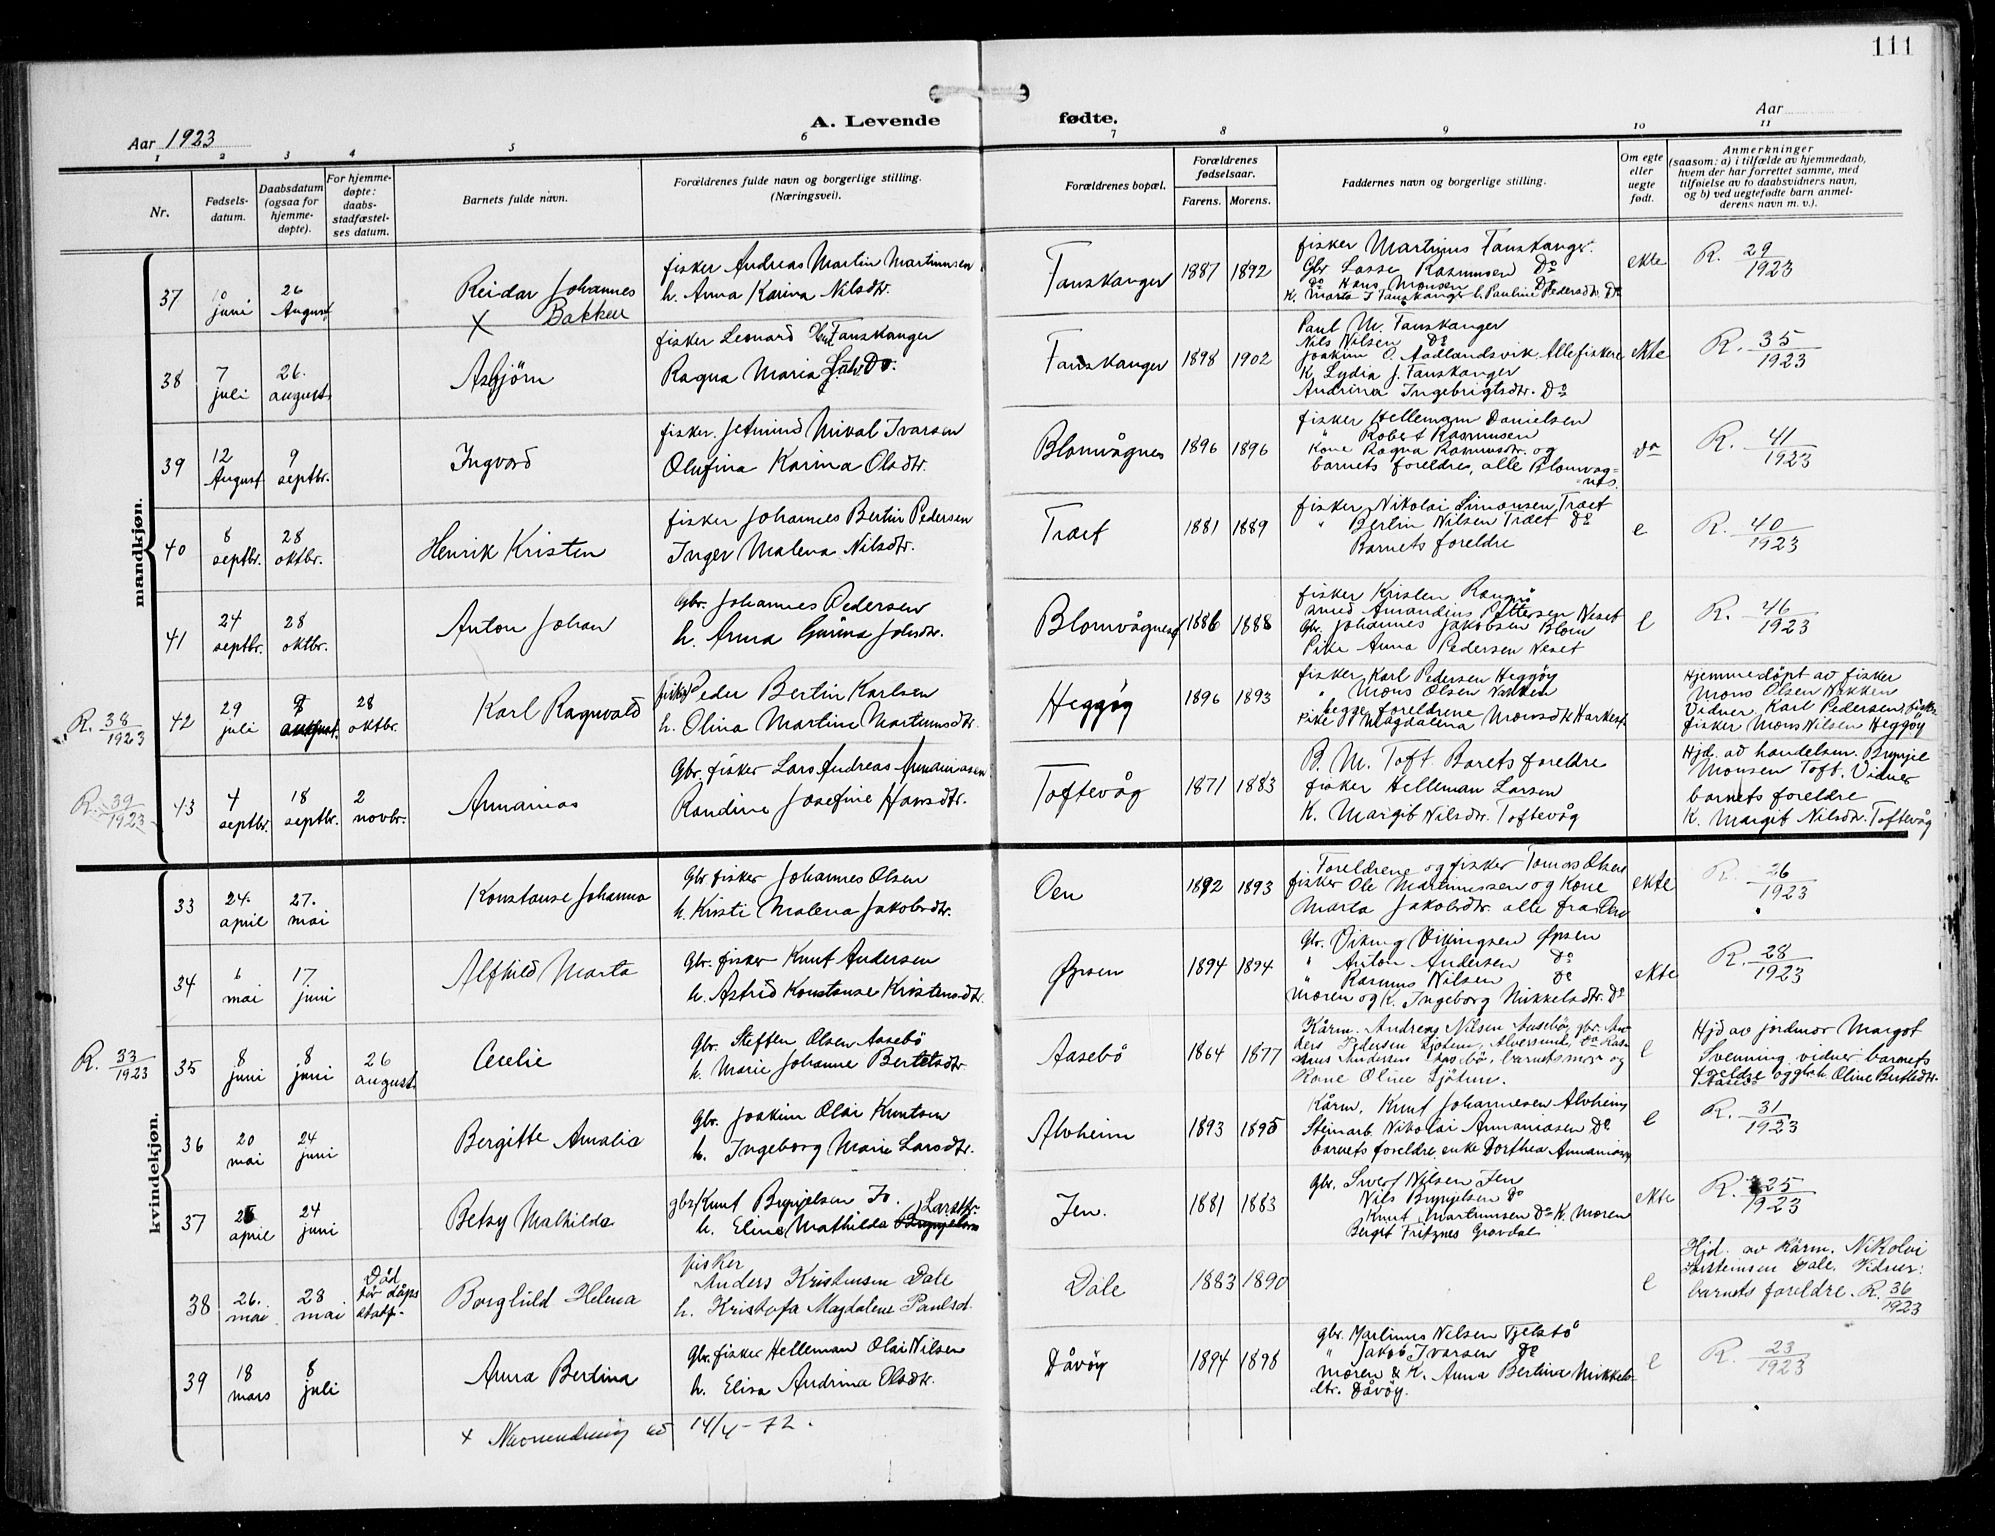 111
Aar 1923
A. Levende fødte.
Aar
1 2 3 4 5 6 7 8 9 10 11
Nr.
Fødsels-
datum.
Daabsdatum
(ogsaa for
hjemme-
døpte).
For hjemme-
døpte:
daabs-
stadfæstel-
ses datum.
Barnets fulde navn.
Forældrenes fulde navn og borgerlige stilling.
(Næringsvei).
Forældrenes bopæl.
Forældrenes
fødselsaar.
Farens. Morens.
Faddernes navn og borgerlige stilling.
Om egte
eller
uegte
født.
Anmerkninger
(saasom: a) i tilfælde av hjemmedaab,
hvem der har forrettet samme, med
tilføielse av to daabsvidners navn,
og b) ved uegtefødte barn anmel-
derens navn m. v.).
mandkjøn.
37
10
juni
26
August
Reidar Johannes
X Bakken
fisker Andreas Martin Martinusen
h. Anna Karina Nilsdtr.
Fauskanger
1887 1892
fisker Martinus Fauskanger.
Gbr Lasse Rasmussen Do
Do Hans Monsen Do
K. Marta J Fauskanger h. Pauline Pedersdtr. Do
ekte
R. 29/1923
38
7
juli
26.
august
Asbjörn
fisker Leonard Fauskanger
Ragna Maria Do.
Fauskanger
1898 1902
Paul M. Fauskanger
Nils Nilsen Do
Joakim O. Aadlandsvik. Alle fiskere
K Lydia J. Fauskanger
Andrina Ingebrigtsdtr. Do
ekte
R. 35/1923
39
12
August
9
septbr.
Ingvard
fisker. Mival Ivarsen
Olufina Karina Olsdtr.
Blomvågnes
1896 1896
fisker Hellemam Danielsen
" Robert Rasmussen
Kone Ragna Rasmusdtr. og
barnets foreldre, alle Blomvåg-
nes.
do
R. 41/1923
40
8
septbr.
28
oktbr.
Henrik Kristen
fisker Johannes Bertin Pedersen
Inger Malena Nilsdtr.
Træet
1881 1889
fisker Nikolai Simonsen Træet
" Bertin Nilsen Træet Do
Barnets foreldre
e
R. 40/1923
41
24
septbr.
28
oktbr.
Anton Johan
Gbr. Johannes Pedersen
h. Anna Gurina Johsdtr.
Blomvågnes
1886 1888
fisker Kristen
smed Amandius Pettersen Neset
Gbr. Johannes Jakobsen Blom
Pike Anna Pedersen Neset
e
R. 46/1923
R. 38/1923
42
29
juli
august.
28
oktbr.
Karl Ragnvald
fisker Peder Bertin Karlsen
h. Olina Martine Martinusdtr.
Heggöy
1896 1893
fisker Karl Pedersen Heggöy
" Mons Olsen Nakken
begge foreldrene
Pike Magdalena Monsdtr
Hjemmedöpt av fisker
Mons Olsen Nakken
Vidner Karl Pedersen, fisker
fisker Mons Nilsen Heggöy
R. 39/1923
43
4
septbr.
18
septbr.
2
novbr.
Annanias
Gbr. fisker Lars Andreas Annaniasen
Randine Josefine Hansdtr.
Toftevåg
1871 1883
B. M. Toft. Barets foreldre
fisker Helleman Larsen
K. Margit Nilsdtr. Toftevåg
Hjd. av handelsm. Brynjel
Monsen Toft. Vidner
barnets foreldre
K. Margit Nilsdtr. Toftevåg
kvindekjøn.
33
24.
april
27.
mai
Konstanse Johanna
Gbr fisker Johannes Olsen
h. Kristi Malena Jakobsdtr.
Oen
1892 1893
Foreldrene og fisker Tomas Olsen
fisker Ole Martinussen og Kone
Marta Jakobsdtr. alle fra Oen
ekte
R. 26/1923
34
6
mai
17.
juni
Alfhild Marta
Gbr. fisker Knut Andersen
h. Astrid Konstanse Kristensdtr.
Øpsen
1894 1894
Gbr. Viking Vikingsen Øpsen
" Anton Andersen Do
" Rasmus Nilsen Do
Moren og K. Ingeborg Mikkelsdtr. Do
ekte
R. 28/1923
R. 33/1923
35
8
juni
8
juni
26
august.
Cecelie
Gbr. Steffen Olsen Aasebö
h. Marie Johanne Bertelsdtr
Aasebö
1864 1877
Kårm. Andreas Nilsen Aasebö, gbr. An-
ders Pedersen Sjötun, Alversund, Do Ras-
mus Andersen Aasebö, barnets mor og
Kone Oline Sjötun.
e
Hjd av jordmor Margot
Svenning. vidner barnets
foreldre og gbrh. Oline Bertelsdtr.
36
20
mai
24
juni
Bergitte Amalia
Gbr. Joakim Olai Knutsen
h. Ingeborg Marie Larsdtr.
Alvheim
1893 1895
Kårm. Knut Johannesen Alvheim
Steinarb. Nikolai Annaniasen Do
barnets foreldre, enke Dorthea Annaniasen
e
R. 31/1923
37
april
24
juni
Betsy Mathilda
gbr Knut Brynjelsen Io. Larsdtr.
h. Eline Mathilda Brynjelsen
Jen.
1881 1883
Gbr. Sivert Nilsen Jen
Nils Brynjelsen Do
Knut Martinusen Do K. Moren
Bergit Fritznes Gravdal
ekte
R. 25/1923
38
26.
mai
28
mai
Död
för dåps
stadf.
Borghild Helena
fisker
Anders Kristensen Dale
h. Kristofa Magdalene Paulsd.
Dale
1883 1890
e
Hjd. av Kårm. Nikolai
Torsteinsen Dale. Vidner:
barnets foreldre. R. 36/1923
39
18
mars
8
juli
Anna Bertina
Gbr. fisker Helleman Olai Nilsen
h. Elisa Andrina Olsdtr.
Dåvöy
1894 1898
gbr. Martinus Nilsen Tjelstö
" Jakob Ivarsen Do
Moren & K. Anna Bertina Mikkels-
dtr. Dåvöy.
e
R. 23/1923
x Navnendring av 14/4-72.